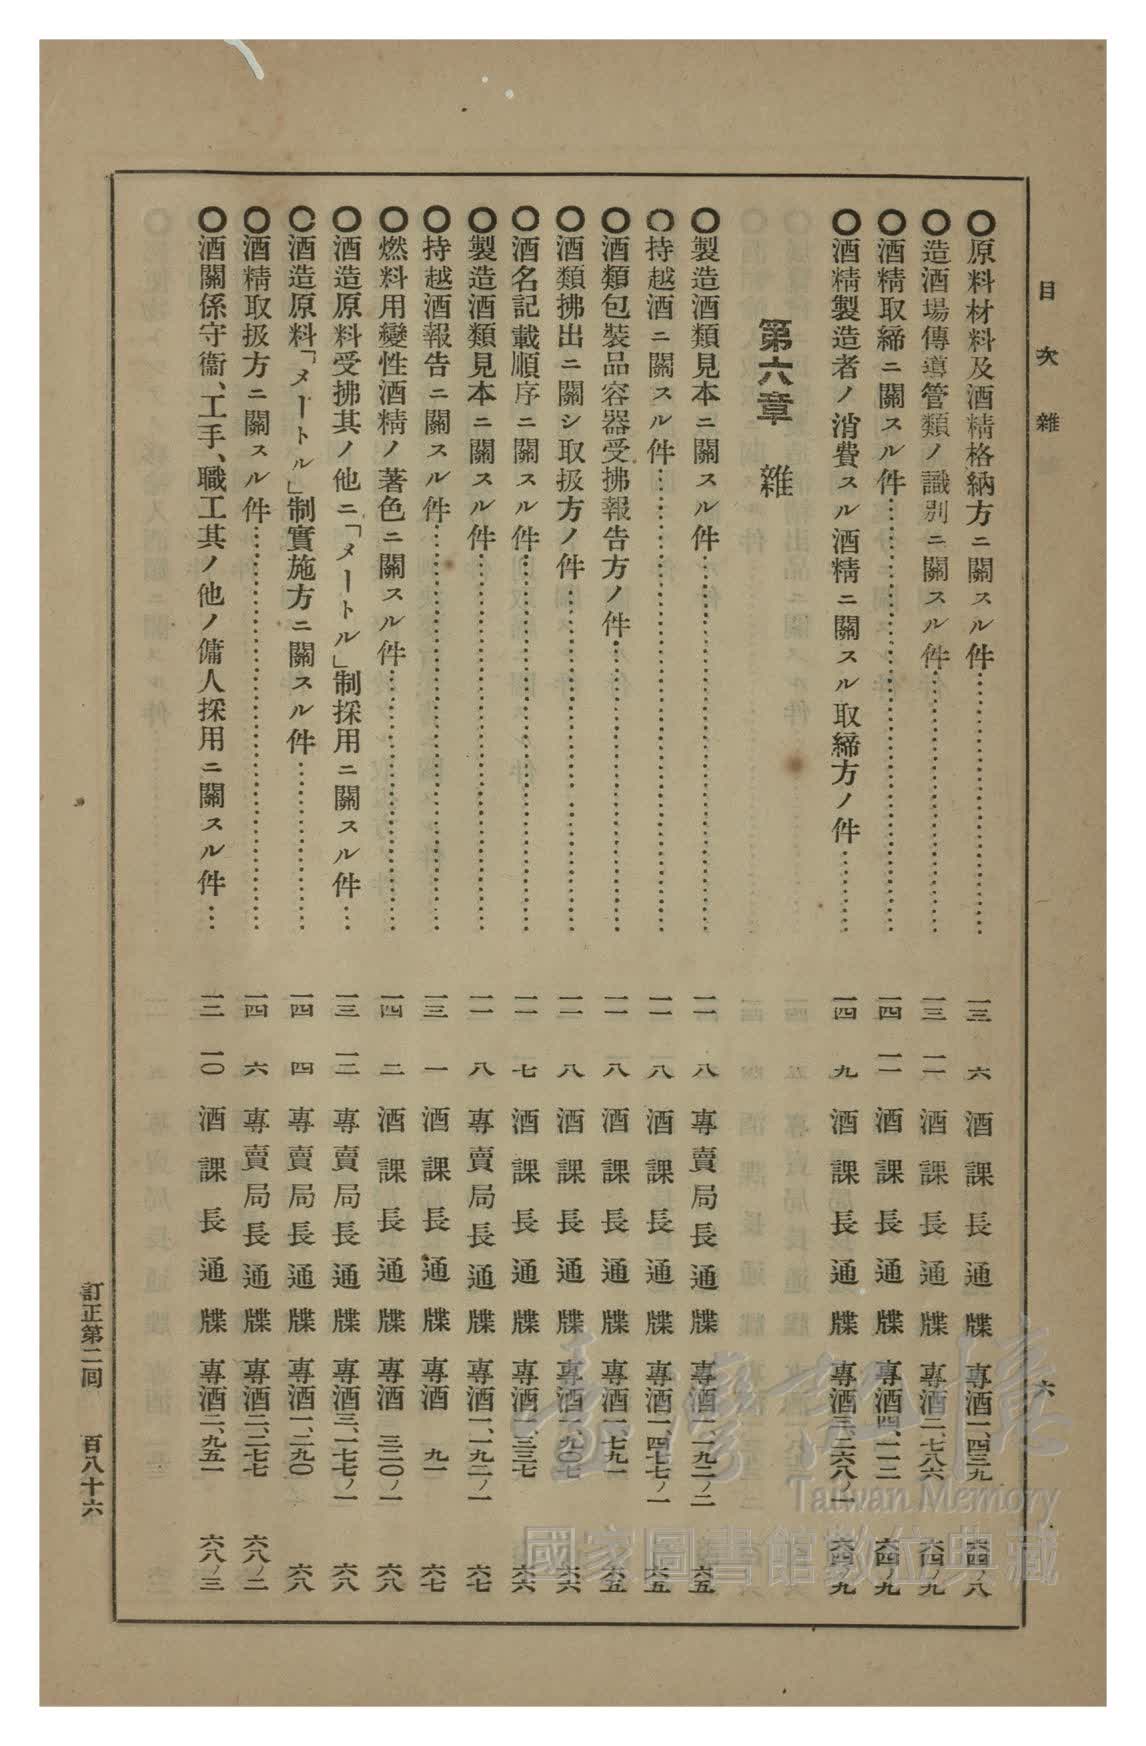 目次 雜
六
〇原料材料及酒精格納方ニ關スル件 一三 六 酒課長通牒 專酒一、四三九 六四ノ八
〇造酒場傳導管類ノ識別ニ關スル件 一三 一一 酒課長通牒 專酒二、七八六 六四ノ九
〇酒精取締ニ關スル件 一四 一一 酒課長通牒 專酒四、一一二 六四ノ九
〇酒精製造者ノ消費スル酒精ニ關スル取締方ノ件 一四 九 酒課長通牒 專酒三、二六八ノ一 六四ノ九
第六章 雜
〇製造酒類見本ニ關スル件 一一 八 專賣局長通牒 專酒一、一九二ノ二 六五
〇持越酒ニ關スル件 一一 八 酒課長通牒 專酒一、四七七ノ一 六五
〇酒類包裝品容器受拂報告方ノ件 一一 八 酒課長通牒 專酒一、七九一 六五
〇酒類拂出ニ關シ取扱方ノ件 一一 八 酒課長通牒 專酒一、九〇七 六六
〇酒名記載順序ニ關スル件 一一 七 酒課長通牒 專酒一、三三七 六六
〇製造酒類見本ニ關スル件 一一 八 專賣局長通牒 專酒一、一九二ノ一 六七
〇持越酒報告ニ關スル件 一三 一 酒課長通牒 專酒 九一 六七
〇燃料用變性酒精ノ著色ニ關スル件 一四 二 酒課長通牒 專酒 三三〇ノ一 六八
〇酒造原料受拂其ノ他ニ「メートル」制採用ニ關スル件 一三 一二 專賣局長通牒 專酒三、一七七ノ一 六八
〇酒造原料「メートル」制實施方ニ關スル件 一四 四 專賣局長通牒 專酒一、二九〇 六八
〇酒精取扱方ニ關スル件 一四 六 專賣局長通牒 專酒二、二七七 六八ノ二
〇酒關係守衞、工手、職工其ノ他ノ傭人採用ニ關スル件 一二 一〇 酒課長通牒 專酒二、九五一 六八ノ三
訂正第二回 百八十六
臺灣記憶
Taiwan Memory
國家圖書館數位典藏